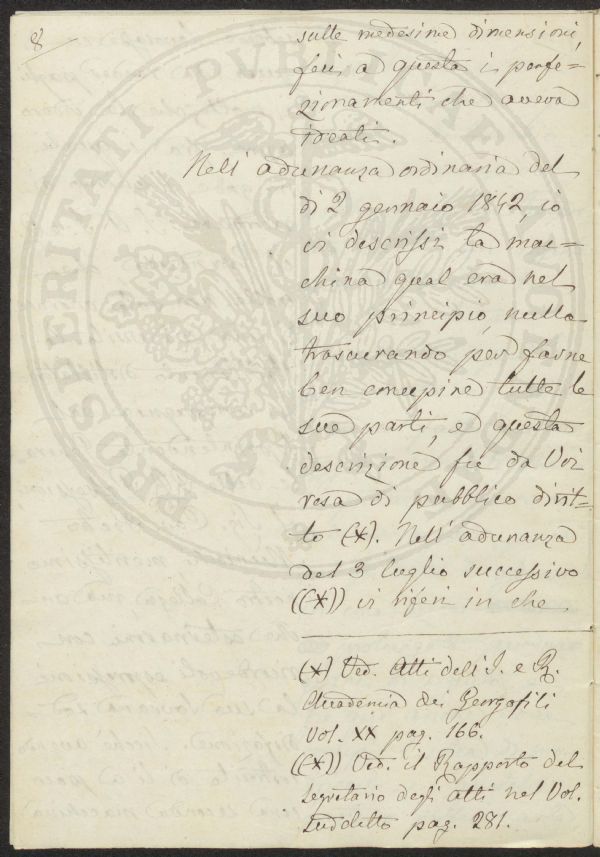 8
sulle medesime dimensioni,
feci a questa i perfe=
zionamenti che aveva
ideati.
Nell' adunanza ordinaria del
dì 2 gennaio 1842, io
vi descrissi la mac=
china qual era nel
suo principio, nulla
trascurando per farne
ben concepire tutte le
sue parti, e questa
descrizione fu da Voi
resa di pubblico dirit=
to (*). Nell' adunanza
del 3 luglio successivo
((*)) vi riferii in che
(*) Ved. Atti dell' I. e R.
Accademia dei Georgofili
Vol. XX pag. 166.
((*)) Ved. il Rapporto del
segretario degli atti nel Vol.
suddetto pag. 281.
PROSPERITATI PUBLICAE